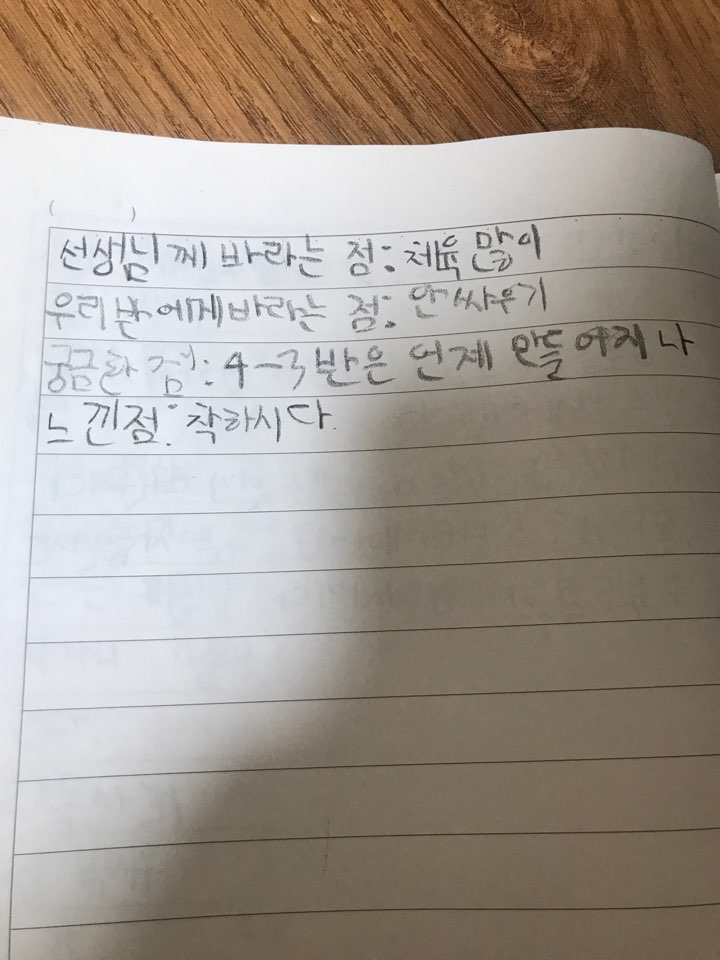 (          )
선생님께 바라는 점: 체육 많이
우리반에게 바라는 점: 안 싸우기
궁금한 점: 4-3반은 언제 만들어지나
느낀점: 착하시다.